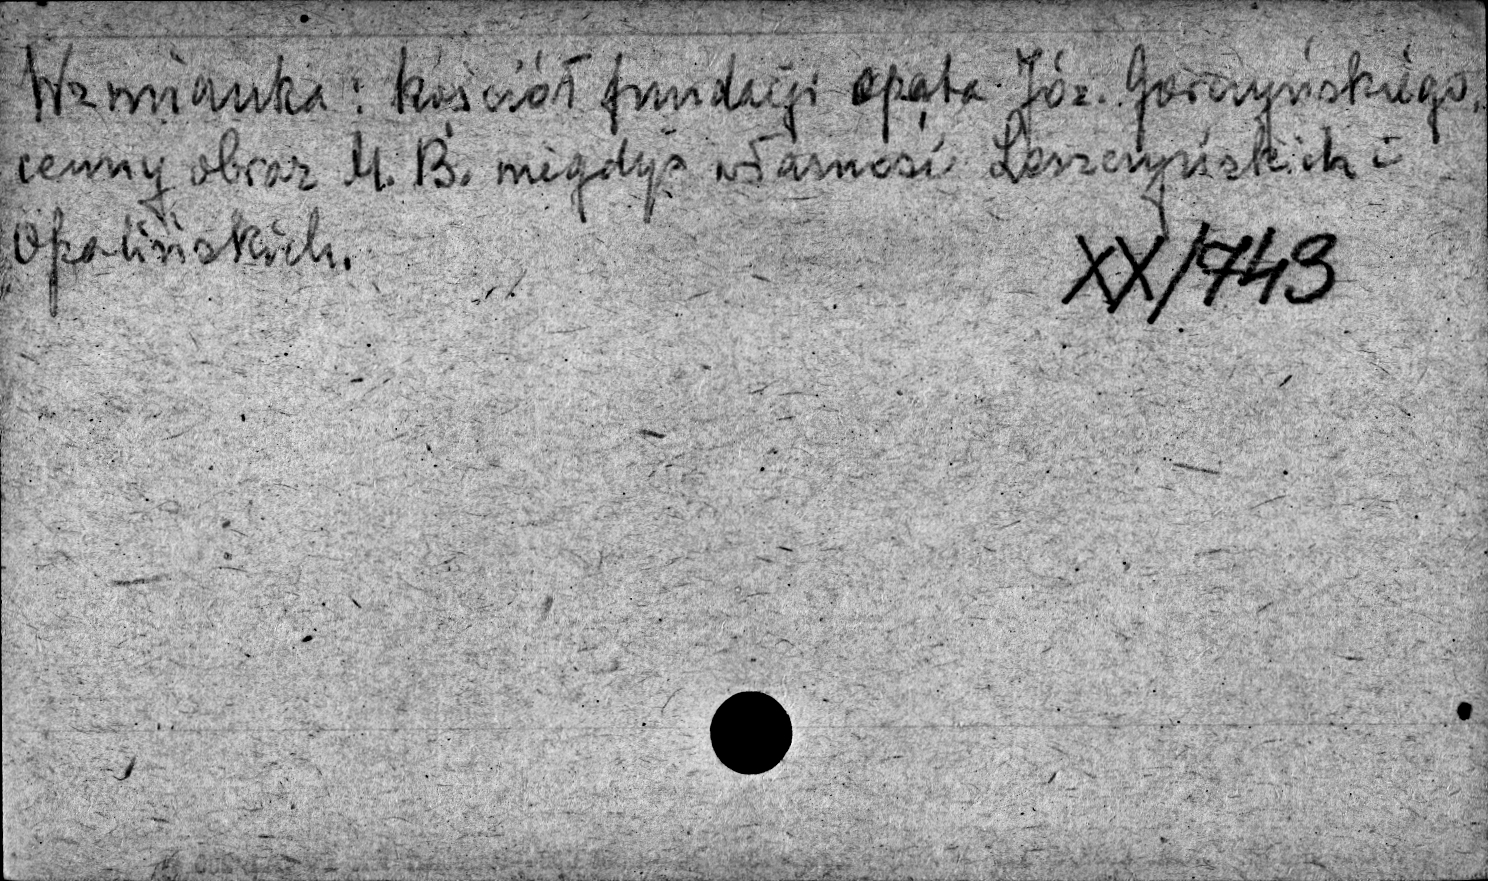 Wzmianka: kościół fundacji opata Józ. Gorczyńskiego,
cenny obraz M. B. niegdyś własność Leszczyńskich i
Opalińskich.
XX/743